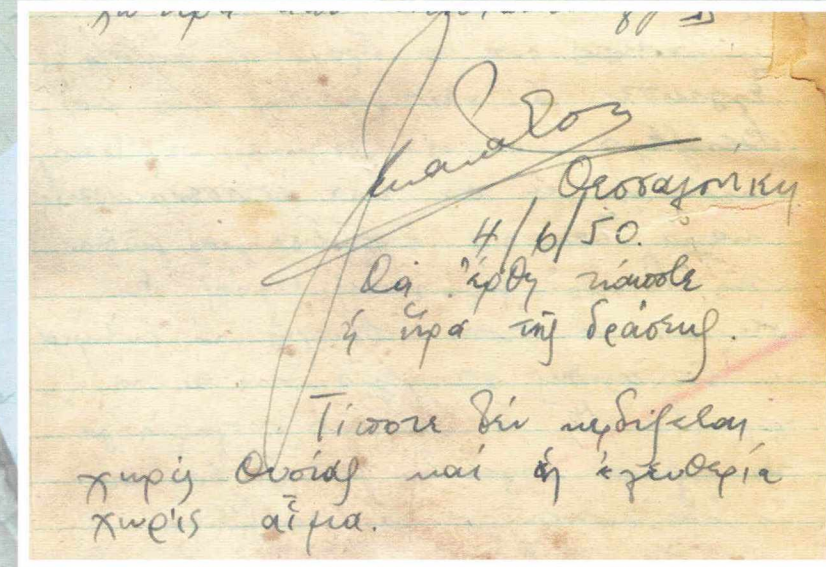 Θεσσαλονίκη
4/6/50.
Θά ἔρθῃ κάποτε
ἡ ὥρα τῆς δράσης.
Τίποτε δέν κερδίζεται
χωρίς θυσίας καί ἡ ἐλευθερία
χωρίς αἷμα.